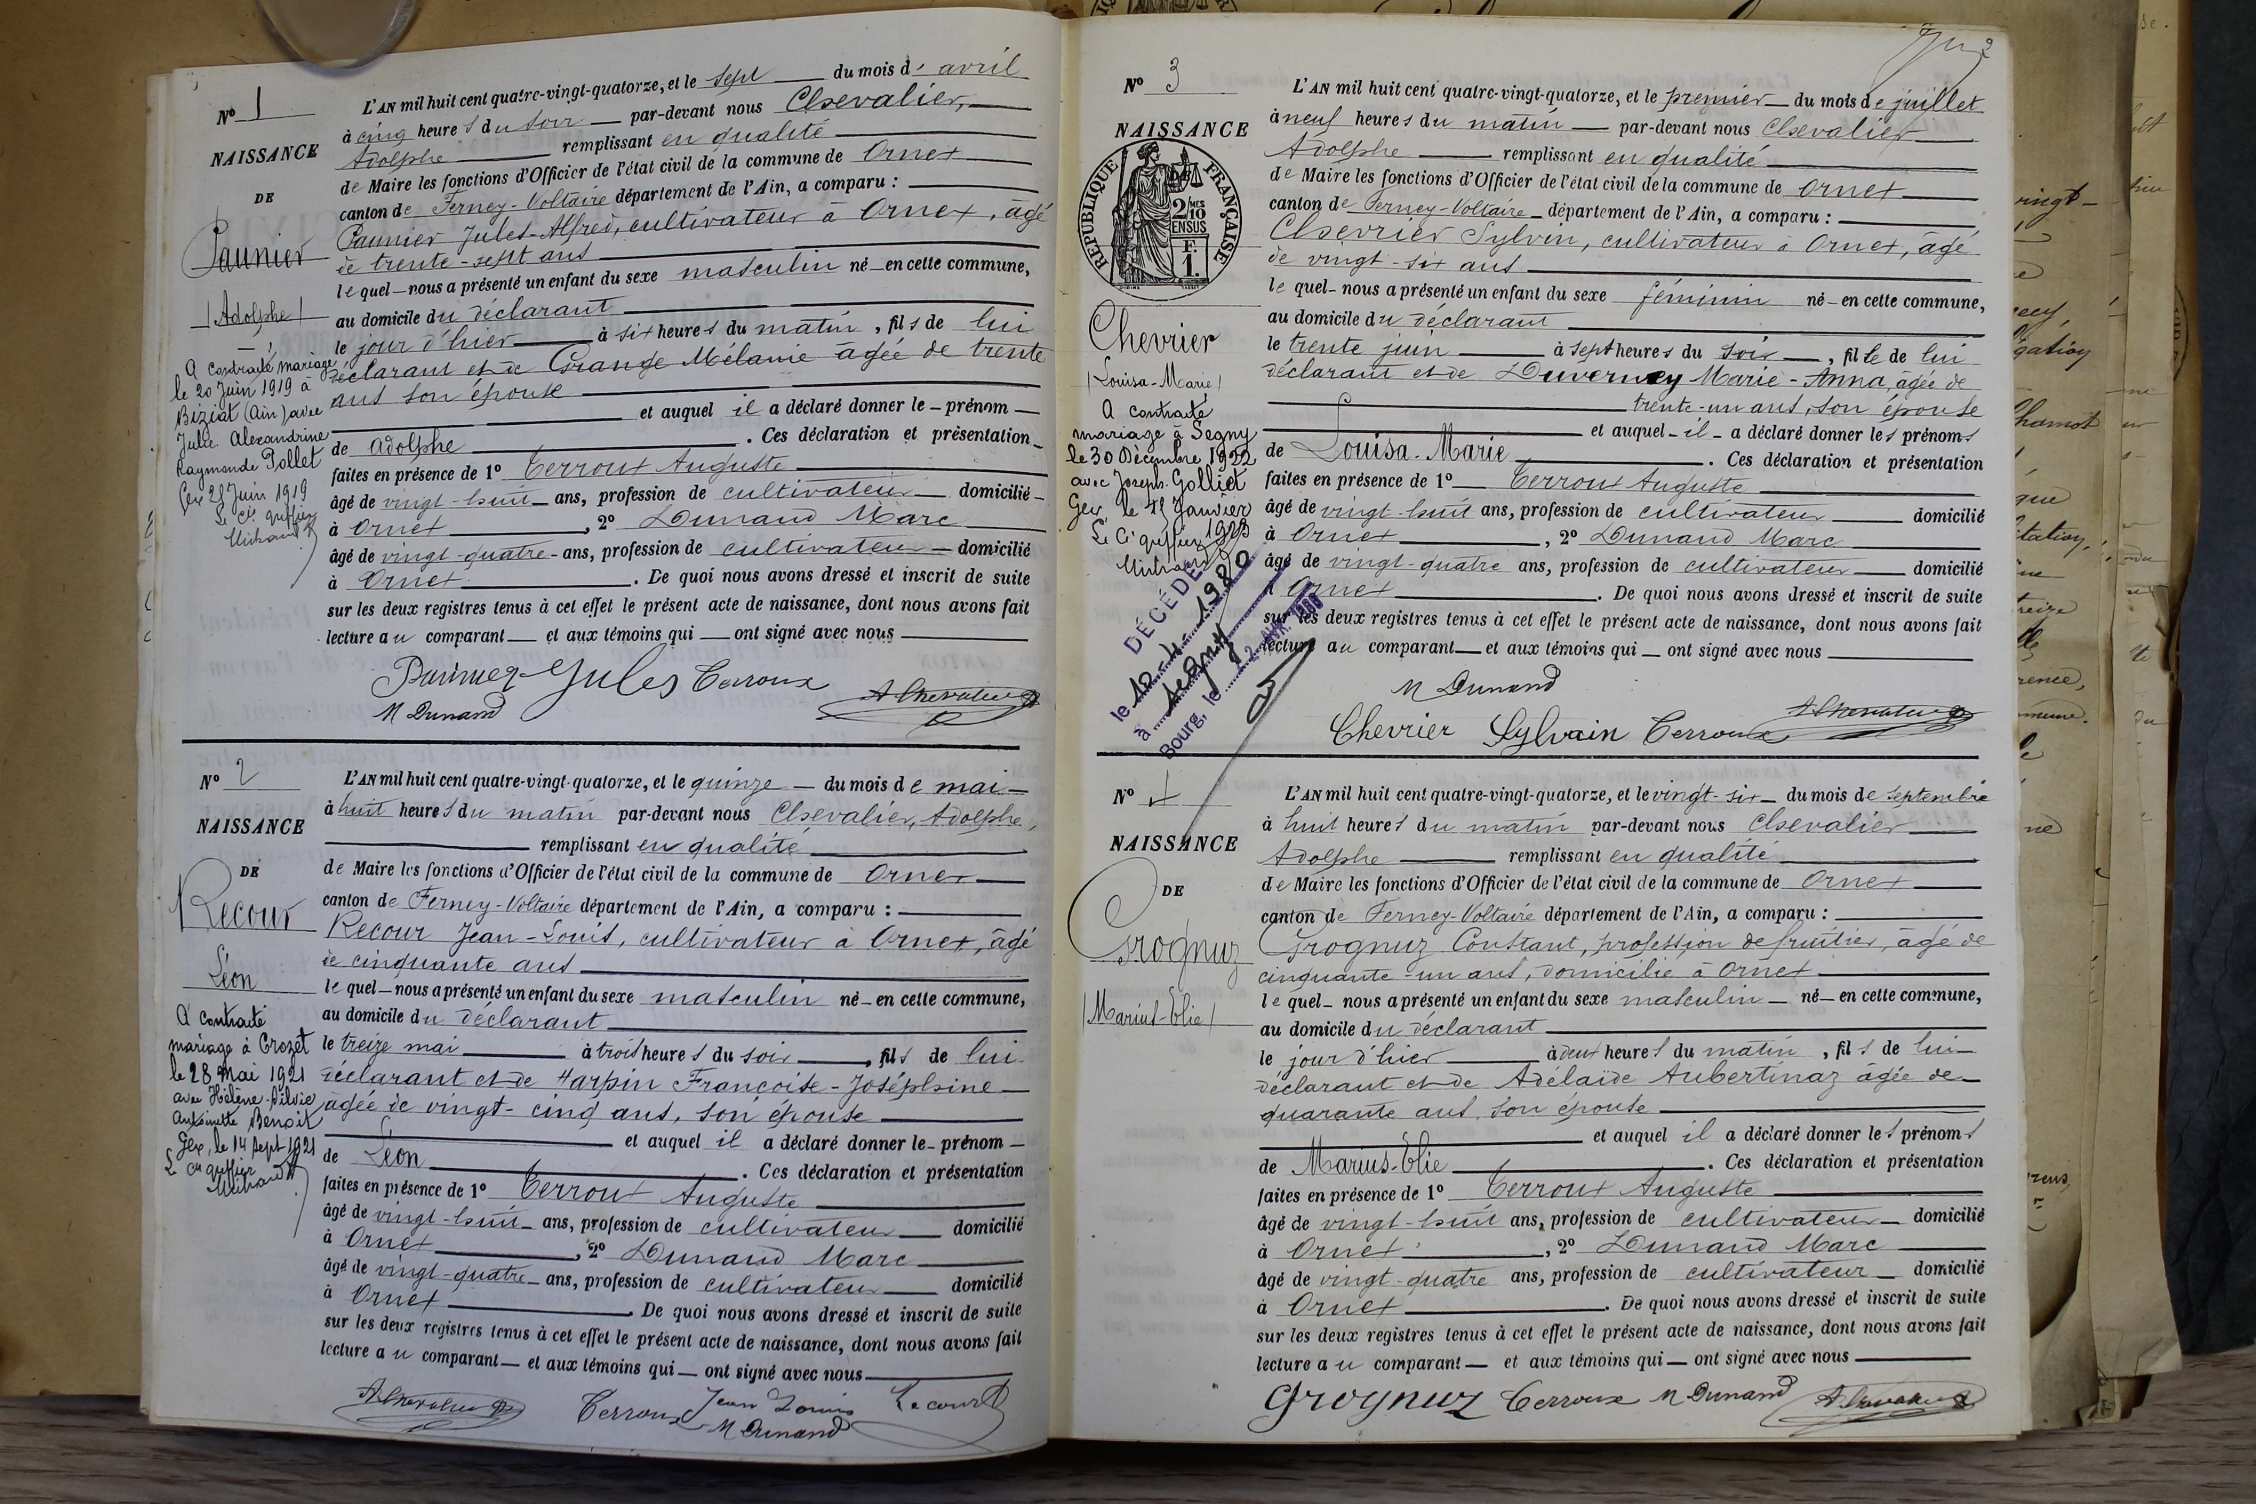 N° 1
NAISSANCE
DE
Paunier
(Adolphe)
A contracté mariage
le 20 Juin 1919 à
Biziat (Ain) avec
Julie Alexandrine
Raymonde Pollet
Gex 28 Juin 1919
Le Cis greffier
L'AN mil huit cent quatre-vingt-quatorze, et le sept du mois d'avril
à cinq heures du soir par-devant nous Chevalier,
Adolphe remplissant en qualité
de Maire les fonctions d'Officier de l'état civil de la commune de Ornex
canton de Ferney-Voltaire département de l'Ain, a comparu :
Paunier Jules-Alfred, cultivateur à Ornex, âgé
de trente-sept ans
lequel nous a présenté un enfant du sexe masculin né en cette commune,
au domicile du déclarant
le jour d'hier à six heures du matin, fils de lui
déclarant et de Grange Mélanie âgée de trente
ans son épouse
et auquel il a déclaré donner le prénom
de Adolphe . Ces déclaration et présentation
faites en présence de 1° Terroux Auguste
âgé de vingt-huit ans, profession de cultivateur domicilié
à Ornex , 2° Dunand Marc
âgé de vingt-quatre ans, profession de cultivateur domicilié
à Ornex . De quoi nous avons dressé et inscrit de suite
sur les deux registres tenus à cet effet le présent acte de naissance, dont nous avons fait
lecture au comparant et aux témoins qui ont signé avec nous
Paunier Jules Terroux A Chevalier
M Dunand
N° 2
NAISSANCE
DE
Recour
Léon
A contracté
mariage à Crozet
le 28 Mai 1921
avec Hélène Silvie
Antoinette Benoit
Gex, le 14 Sept 1921
Le Cis greffier
L'AN mil huit cent quatre-vingt-quatorze, et le quinze du mois de mai
à huit heures du matin par-devant nous Chevalier, Adolphe,
remplissant en qualité
de Maire les fonctions d'Officier de l'état civil de la commune de Ornex
canton de Ferney-Voltaire département de l'Ain, a comparu :
Recour Jean-Louis, cultivateur à Ornex, âgé
de cinquante ans
lequel nous a présenté un enfant du sexe masculin né en cette commune,
au domicile du déclarant
le treize mai à trois heures du soir , fils de lui
déclarant et de Harpin Françoise-Joséphine
âgée de vingt-cinq ans, son épouse
et auquel il a déclaré donner le prénom
de Léon . Ces déclaration et présentation
faites en présence de 1° Terroux Auguste
âgé de vingt-huit ans, profession de cultivateur domicilié
à Ornex , 2° Dunand Marc
âgé de vingt-quatre ans, profession de cultivateur domicilié
à Ornex . De quoi nous avons dressé et inscrit de suite
sur les deux registres tenus à cet effet le présent acte de naissance, dont nous avons fait
lecture au comparant et aux témoins qui ont signé avec nous
A Chevalier Terroux Jean Louis Recour
M Dunand
2
N° 3
NAISSANCE
RÉPUBLIQUE FRANÇAISE
2 MES
10
EN SUS
F.
1.
Chevrier
(Louisa-Marie)
A contracté
mariage à Segny
le 30 Décembre 1922
avec Joseph Golliet
Gex le 12 Janvier
1923
Le Cis greffier
DÉCÉDÉE
le 10-4-1980
à Segny
Bourg, le
L'AN mil huit cent quatre-vingt-quatorze, et le premier du mois de juillet
à neuf heures du matin par-devant nous Chevalier
Adolphe remplissant en qualité
de Maire les fonctions d'Officier de l'état civil de la commune de Ornex
canton de Ferney-Voltaire département de l'Ain, a comparu :
Chevrier Sylvin, cultivateur à Ornex, âgé
de vingt-six ans
lequel nous a présenté un enfant du sexe féminin né en cette commune,
au domicile du déclarant
le trente juin à sept heures du soir , fille de lui
déclarant et de Duverney Marie-Anna, âgée de
trente-un ans, son épouse
et auquel il a déclaré donner les prénoms
de Louisa-Marie . Ces déclaration et présentation
faites en présence de 1° Terroux Auguste
âgé de vingt-huit ans, profession de cultivateur domicilié
à Ornex , 2° Dunand Marc
âgé de vingt-quatre ans, profession de cultivateur domicilié
à Ornex . De quoi nous avons dressé et inscrit de suite
sur les deux registres tenus à cet effet le présent acte de naissance, dont nous avons fait
lecture au comparant et aux témoins qui ont signé avec nous
M Dunand
Chevrier Sylvain Terroux A Chevalier
N° 4
NAISSANCE
DE
Grognuz
(Marius-Elie)
L'AN mil huit cent quatre-vingt-quatorze, et le vingt-six du mois de septembre
à huit heures du matin par-devant nous Chevalier
Adolphe remplissant en qualité
de Maire les fonctions d'Officier de l'état civil de la commune de Ornex
canton de Ferney-Voltaire département de l'Ain, a comparu :
Grognuz Constant, profession de fruitier, âgé de
cinquante-un ans, domicilié à Ornex
lequel nous a présenté un enfant du sexe masculin né en cette commune,
au domicile du déclarant
le jour d'hier à deux heures du matin , fils de lui
déclarant et de Adélaïde Aubertinaz âgée de
quarante ans, son épouse
et auquel il a déclaré donner les prénoms
de Marius-Elie . Ces déclaration et présentation
faites en présence de 1° Terroux Auguste
âgé de vingt-huit ans, profession de cultivateur domicilié
à Ornex , 2° Dunand Marc
âgé de vingt-quatre ans, profession de cultivateur domicilié
à Ornex . De quoi nous avons dressé et inscrit de suite
sur les deux registres tenus à cet effet le présent acte de naissance, dont nous avons fait
lecture au comparant et aux témoins qui ont signé avec nous
Grognuz Terroux M Dunand A Chevalier